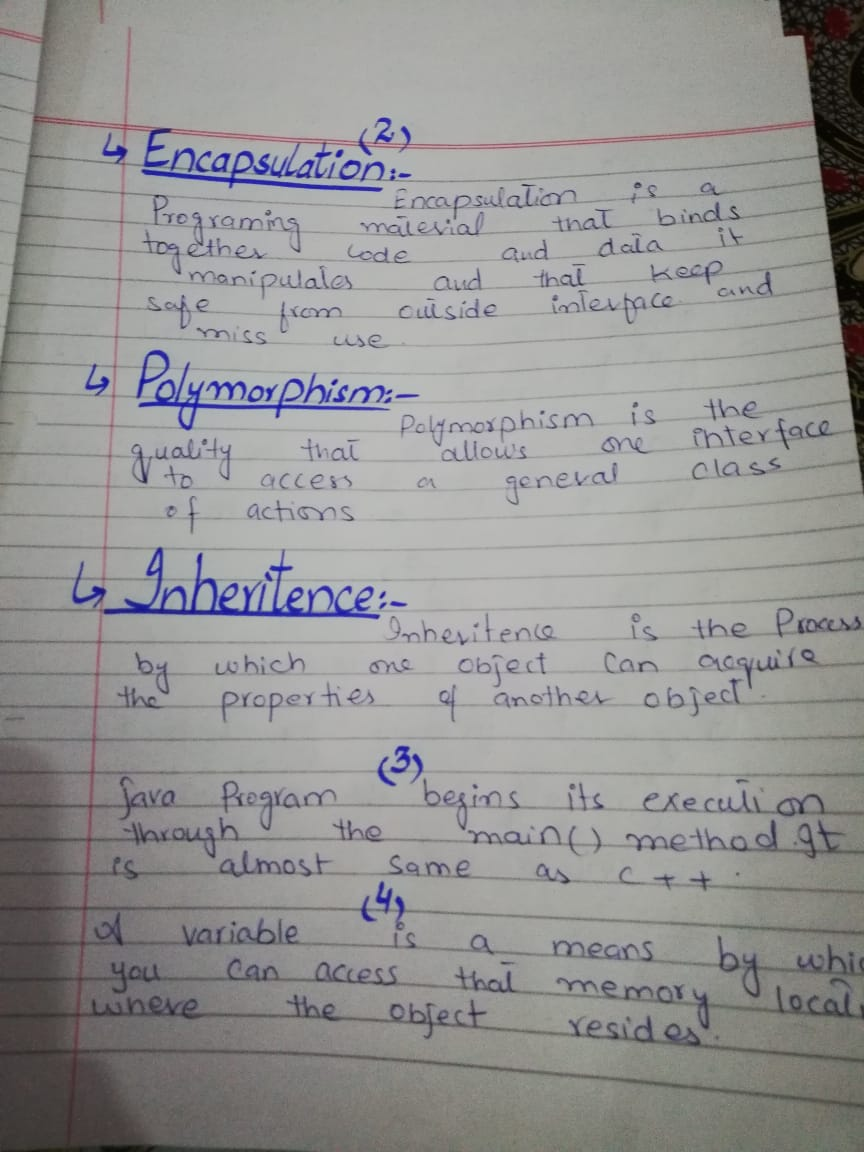 (2)
↳ Encapsulation:-
Encapsulation is a
Programing material that binds
together code and data it
manipulates and that keep
safe from outside interface and
miss use.
↳ Polymorphism:-
Polymorphism is the
quality that allows one interface
to access a general class
of actions
↳ Inheritence:-
Inheritence is the Process
by which one object can acquire
the properties of another object.
(3)
Java Program begins its execution
through the main() method. It
is almost same as C++.
(4)
A variable is a means by whic
you can access that memory local
where the object resides.